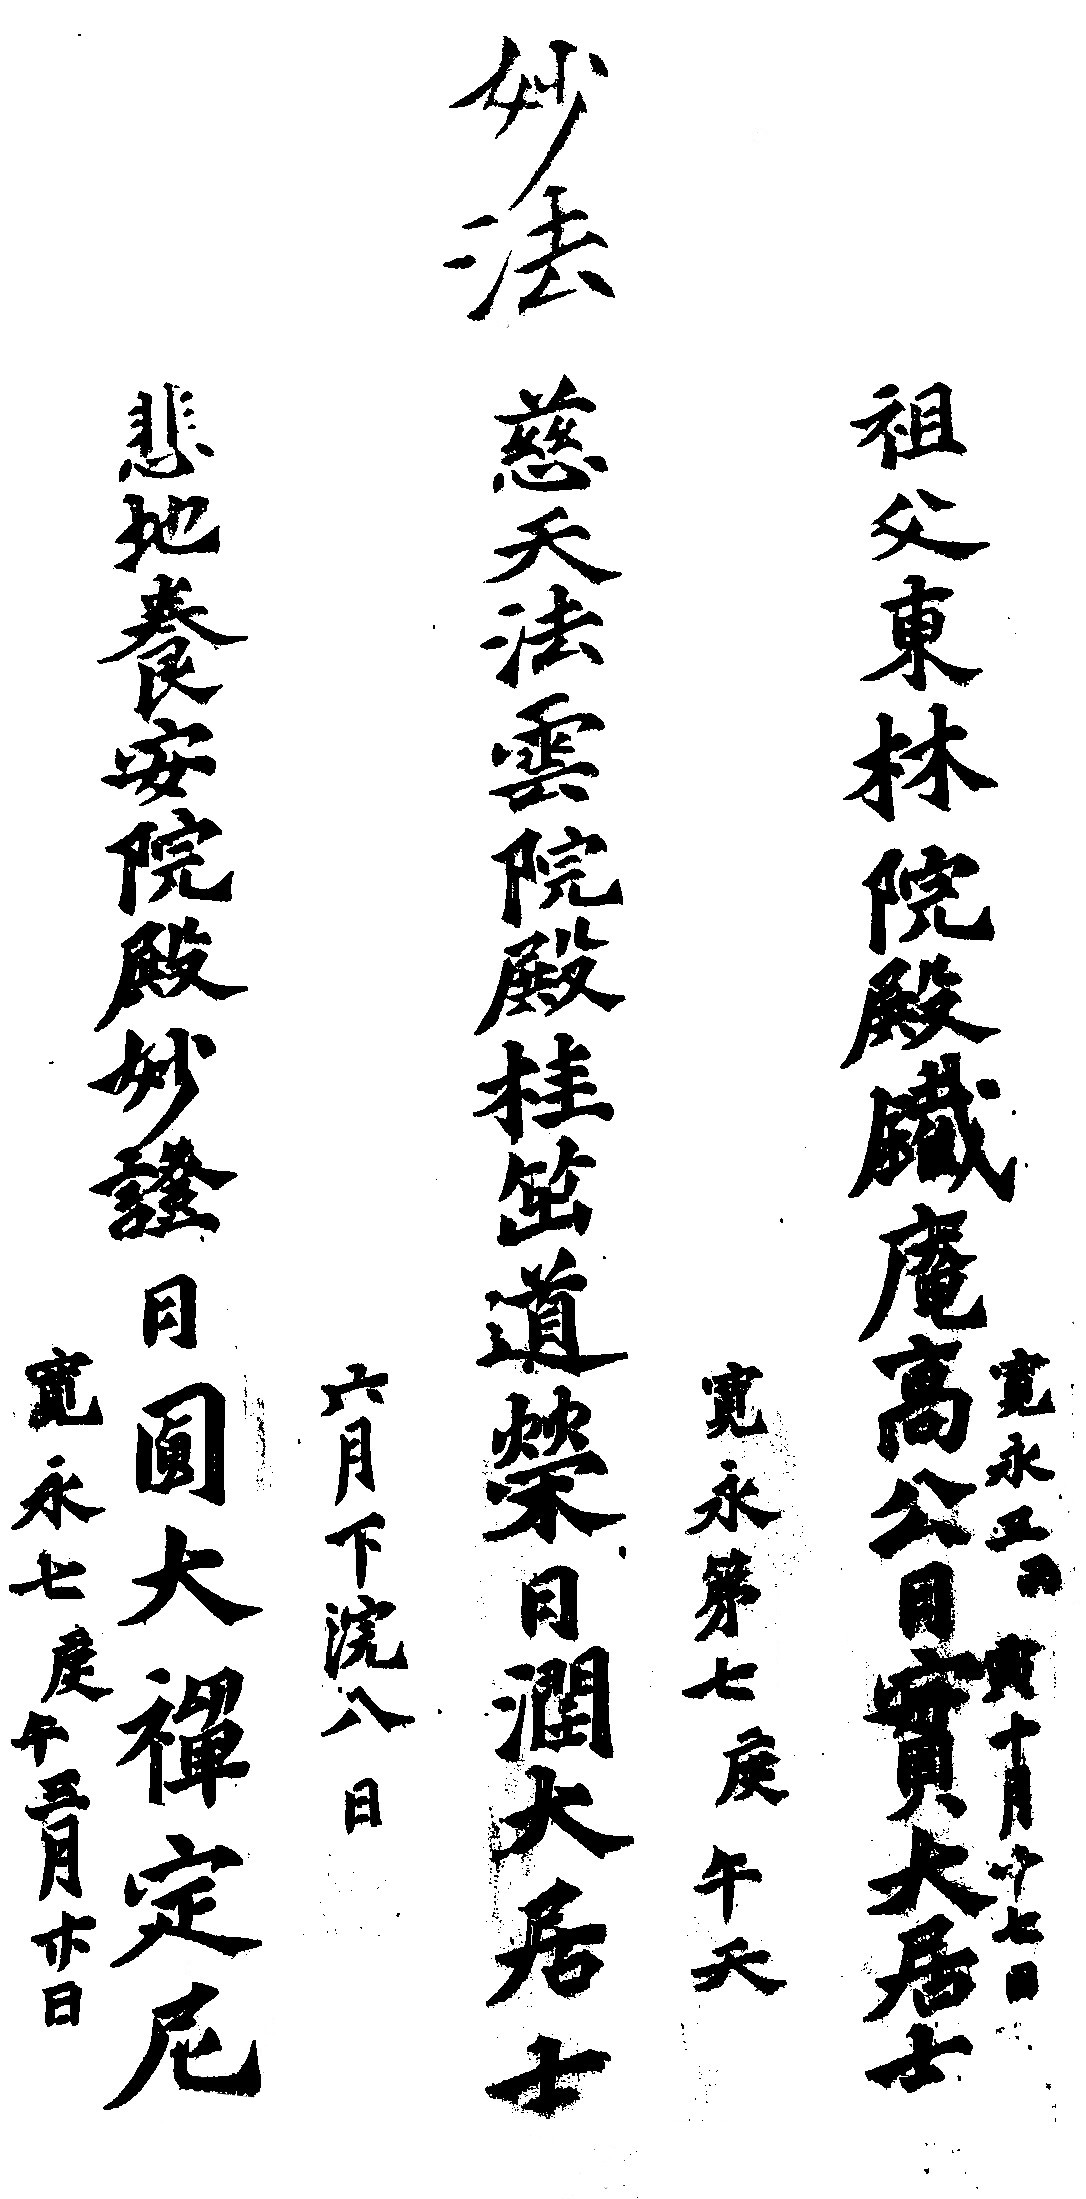 妙法
祖父東林院殿鐵庵高公日實大居士
寛永三丙寅十月廿七日
慈天法雲院殿桂道榮日潤大居士
寛永第七庚午天
六月下浣八日
悲地養安院殿妙證日圓大禪定尼
寛永七庚午月日